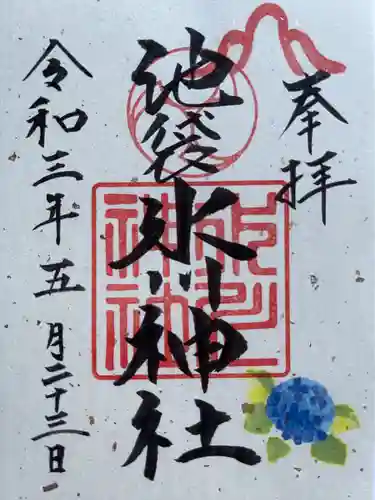 奉拝
池袋水神社
令和三年五月二十三日
水神社